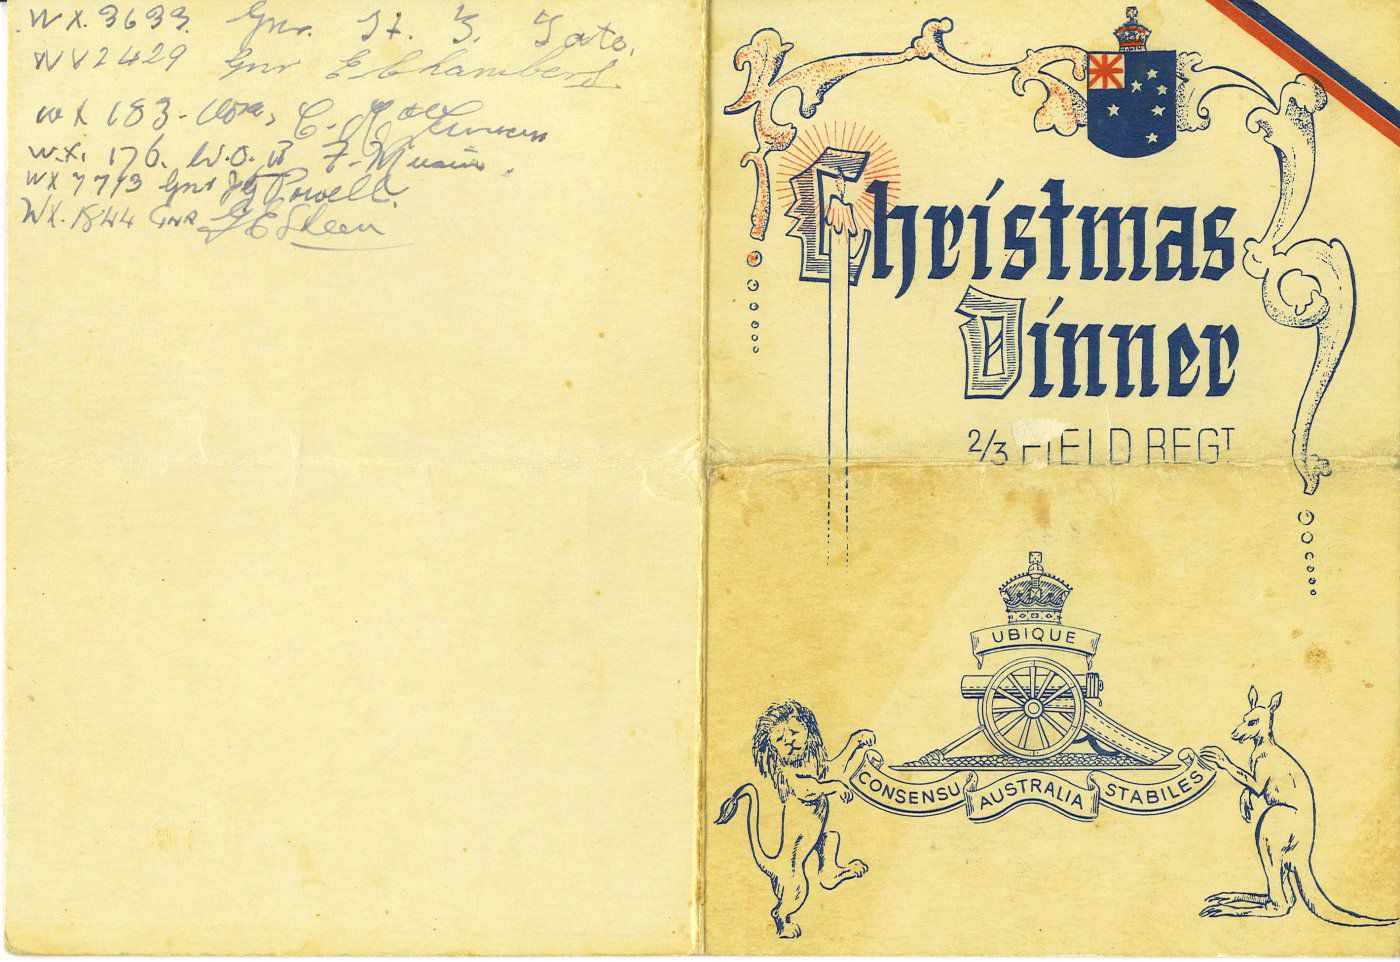 WX. 3633. Gnr. St. J. Tate.
WV2429 Gnr E Chambers.
WX 183. C.
W.X. 176. W.O. II F.
WX 7713 Gnr Powell.
WX. 1844 GNR G E Skeen
Christmas
Dinner
2/3 FIELD REGT
UBIQUE
CONSENSU AUSTRALIA STABILES